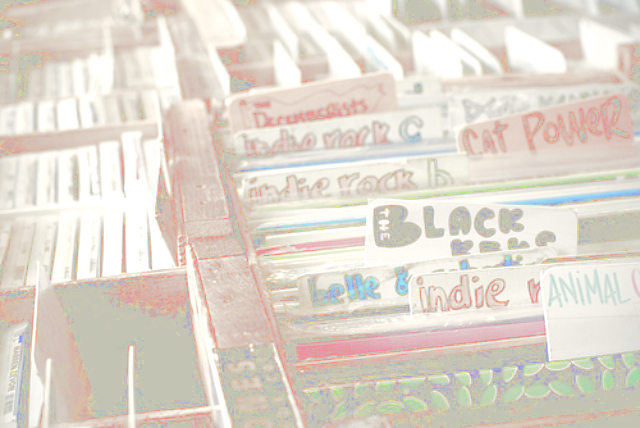 THE
Decemberists
indie rock C
Cat Power
indie rock b
THE BLACK
KEYS
Belle &
indie r
ANIMAL